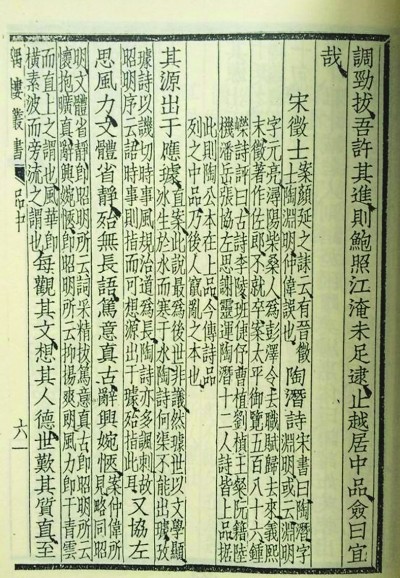 調勁拔吾許其進則鮑照江淹未足逮止越居中品僉曰宜
哉
宋徵士案顏延之誄云有晉徵士陶淵明仲偉誤也陶潛詩宋書曰陶潛字淵明或云淵明
字元亮潯陽柴桑人爲彭澤令去職賦歸去來義熙
末徵著作佐郎不就卒案太平御覽五百八十六鍾
嶸詩評曰古詩李陵班倢伃曹植劉楨王粲阮籍陸
機潘岳張協左思謝靈運陶潛十二人詩皆上品據
此則陶公本在上品今傳詩品
列之中品乃後人竄亂之本也
其源出于應璩直案此説最爲後世非議然璩世以文學顯冰生於水而寒于水陶詩何渠不能出璩故
璩詩以譏切時事風規治道爲長陶詩亦多諷刺故昭明序云語時事則指而可想源出于璩殆指此耳又協左
思風力文體省靜殆無長語篤意真古辭興婉愜案仲偉所見略同昭
明文體省靜即昭明所云詞采精拔篤意真古即昭明所云
懷抱曠真辭興婉愜即昭明所云抑揚爽朗風力即干青雲
而直上之謂也風華即橫素波而旁流之謂也每觀其文想其人德世歎其質直至
隅樓叢書 品中 六一